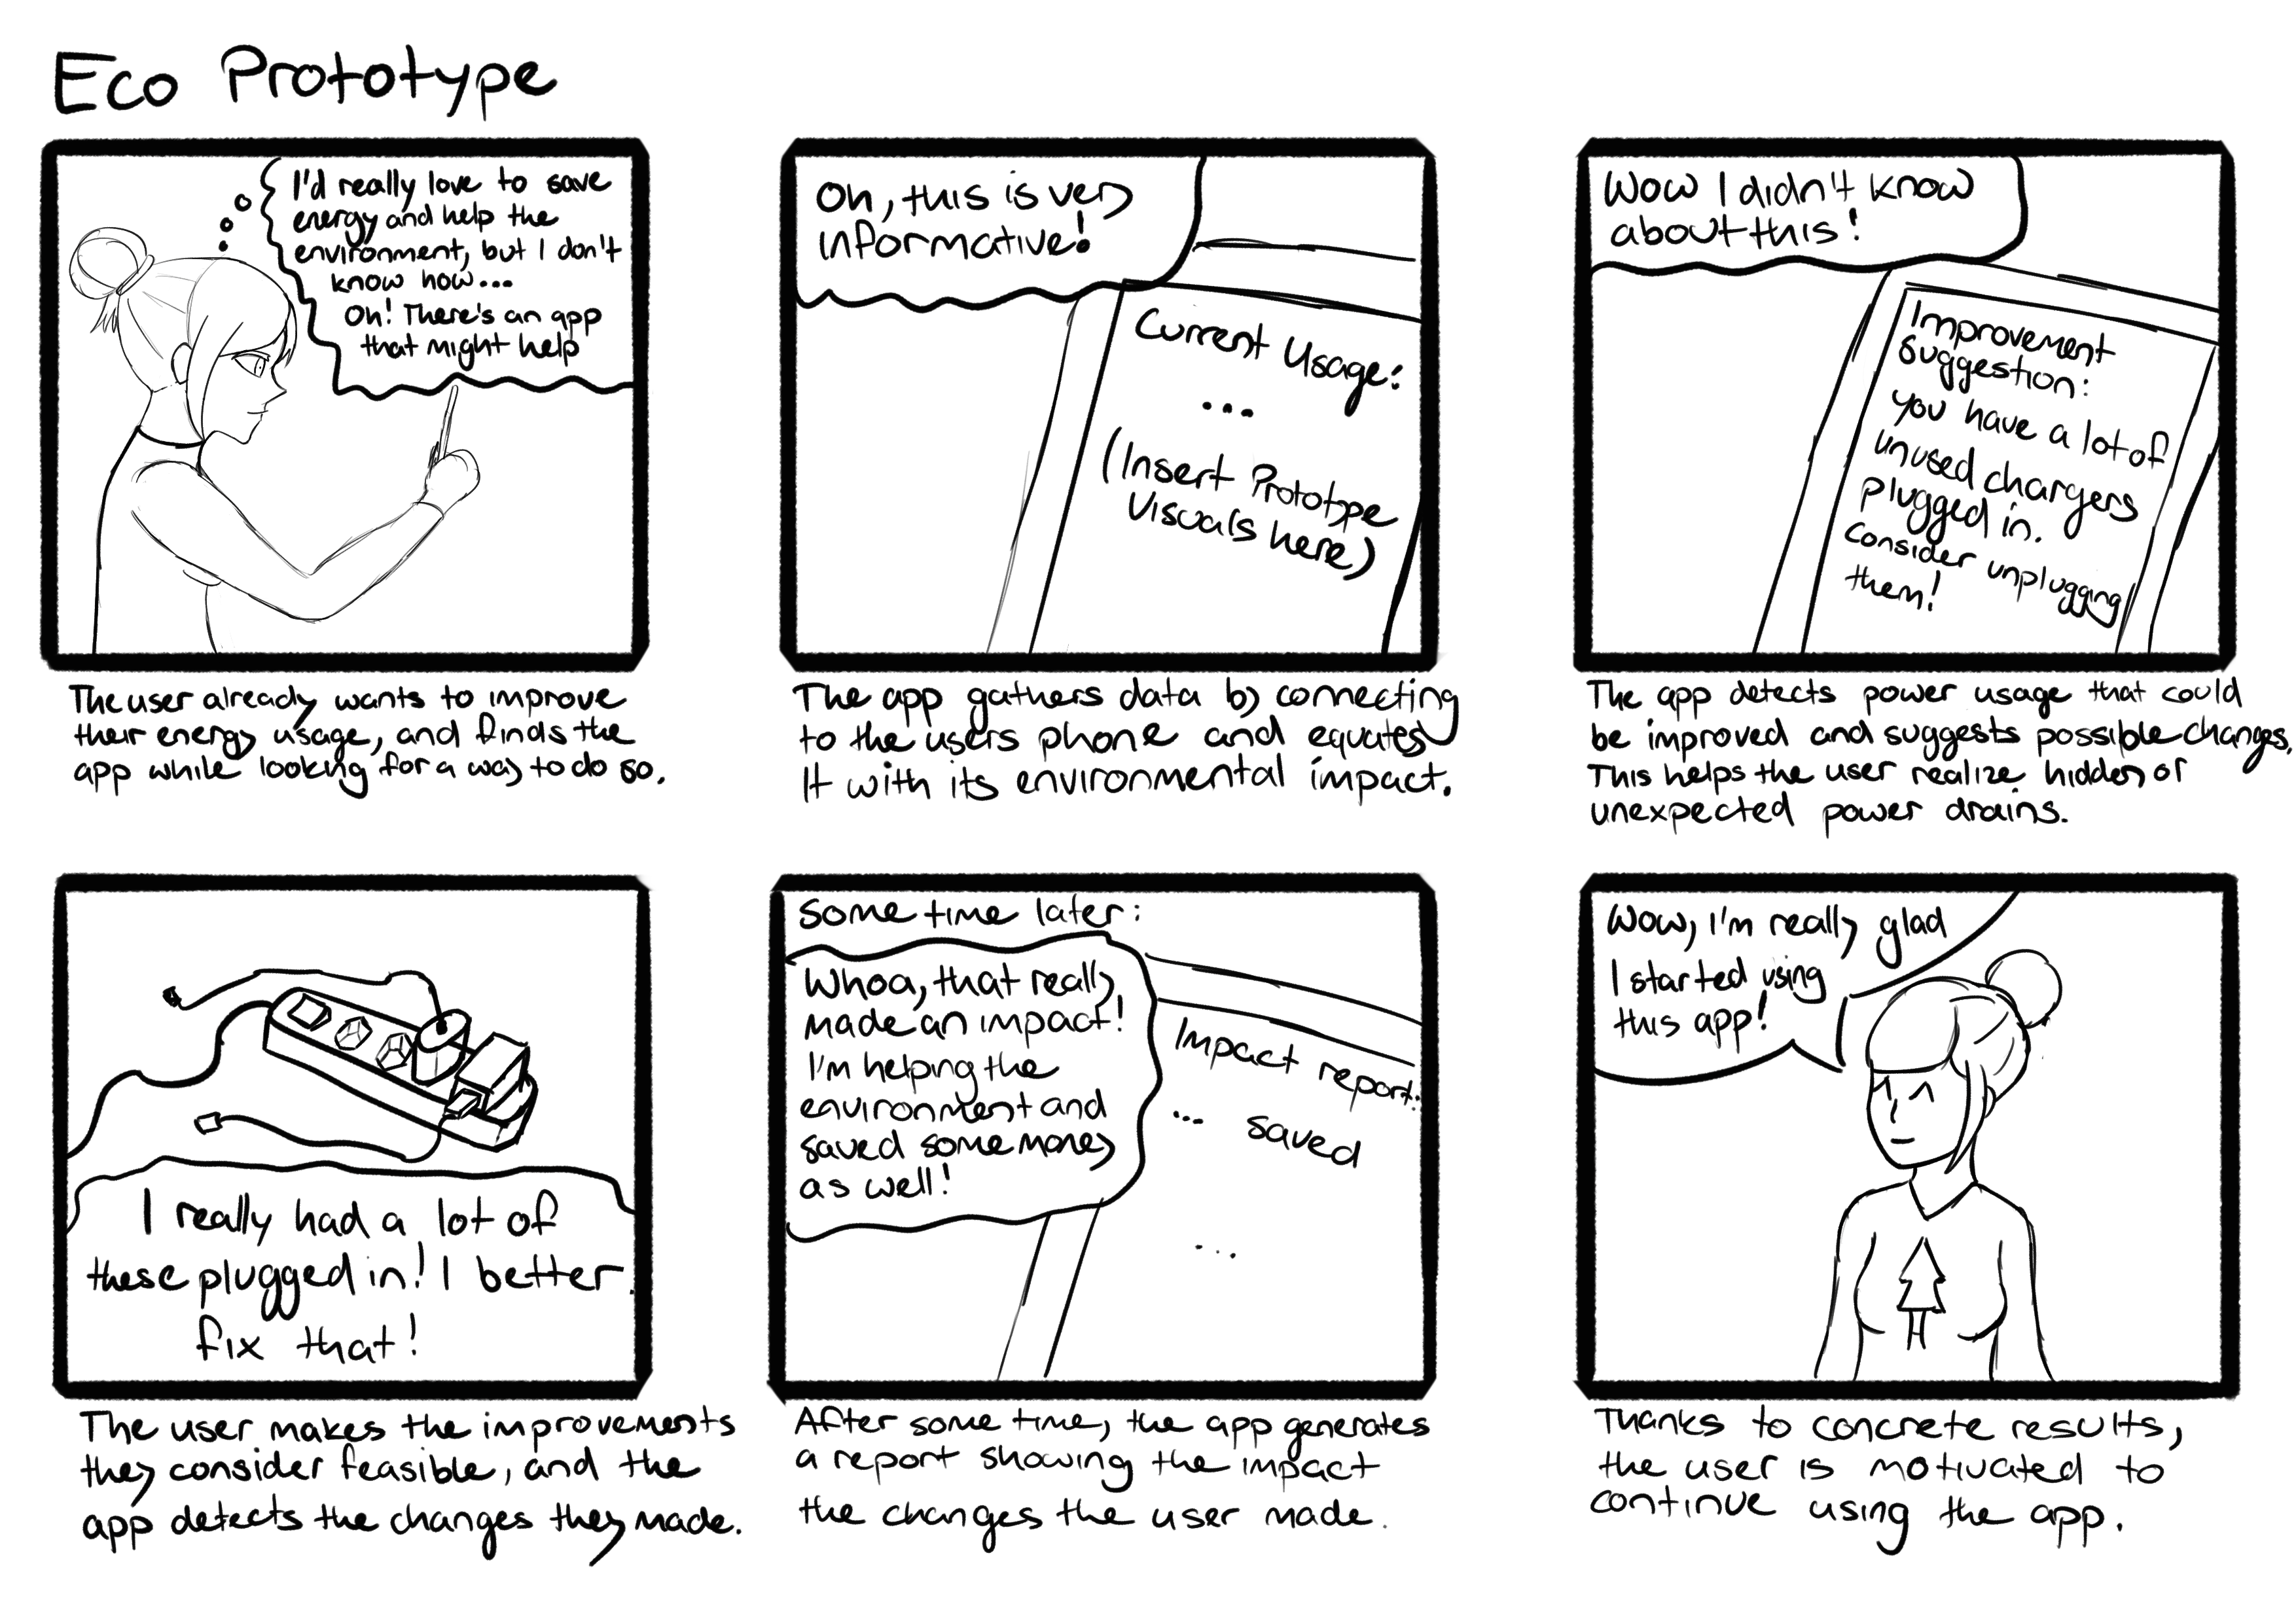 Eco Prototype
I'd really love to save
energy and help the
environment, but I don't
know how...
Oh! There's an app
that might help
The user already wants to improve
their energy usage, and finds the
app while looking for a way to do so.
Oh, this is very
informative!
Current Usage:
...
(Insert Prototype
Visuals here)
The app gathers data by connecting
to the users phone and equates
It with its environmental impact.
Wow I didn't know
about this!
Improvement
Suggestion:
You have a lot of
unused chargers
plugged in.
Consider unplugging
them!
The app detects power usage that could
be improved and suggests possible changes.
This helps the user realize hidden or
unexpected power drains.
I really had a lot of
these plugged in! I better
fix that!
The user makes the improvements
they consider feasible, and the
app detects the changes they made.
Some time later:
Whoa, that really
made an impact!
I'm helping the
environment and
saved some money
as well!
Impact report:
... saved
...
After some time, the app generates
a report showing the impact
the changes the user made.
Wow, I'm really glad
I started using
this app!
Thanks to concrete results,
the user is motivated to
continue using the app.